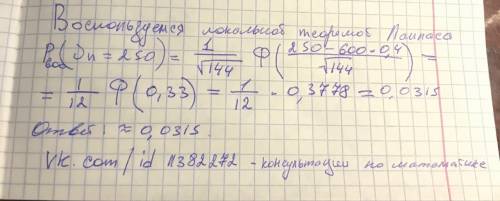 Воспользуемся локальной теоремой Лапласа
P₆₀₀(Dn = 250) = 1/√144 Ф(250 - 600 · 0,4/√144) =
= 1/12 Ф(0,33) = 1/12 · 0,3778 = 0,0315
Ответ: ≈ 0,0315.
vk.com/id 11382272 - консультации по математике